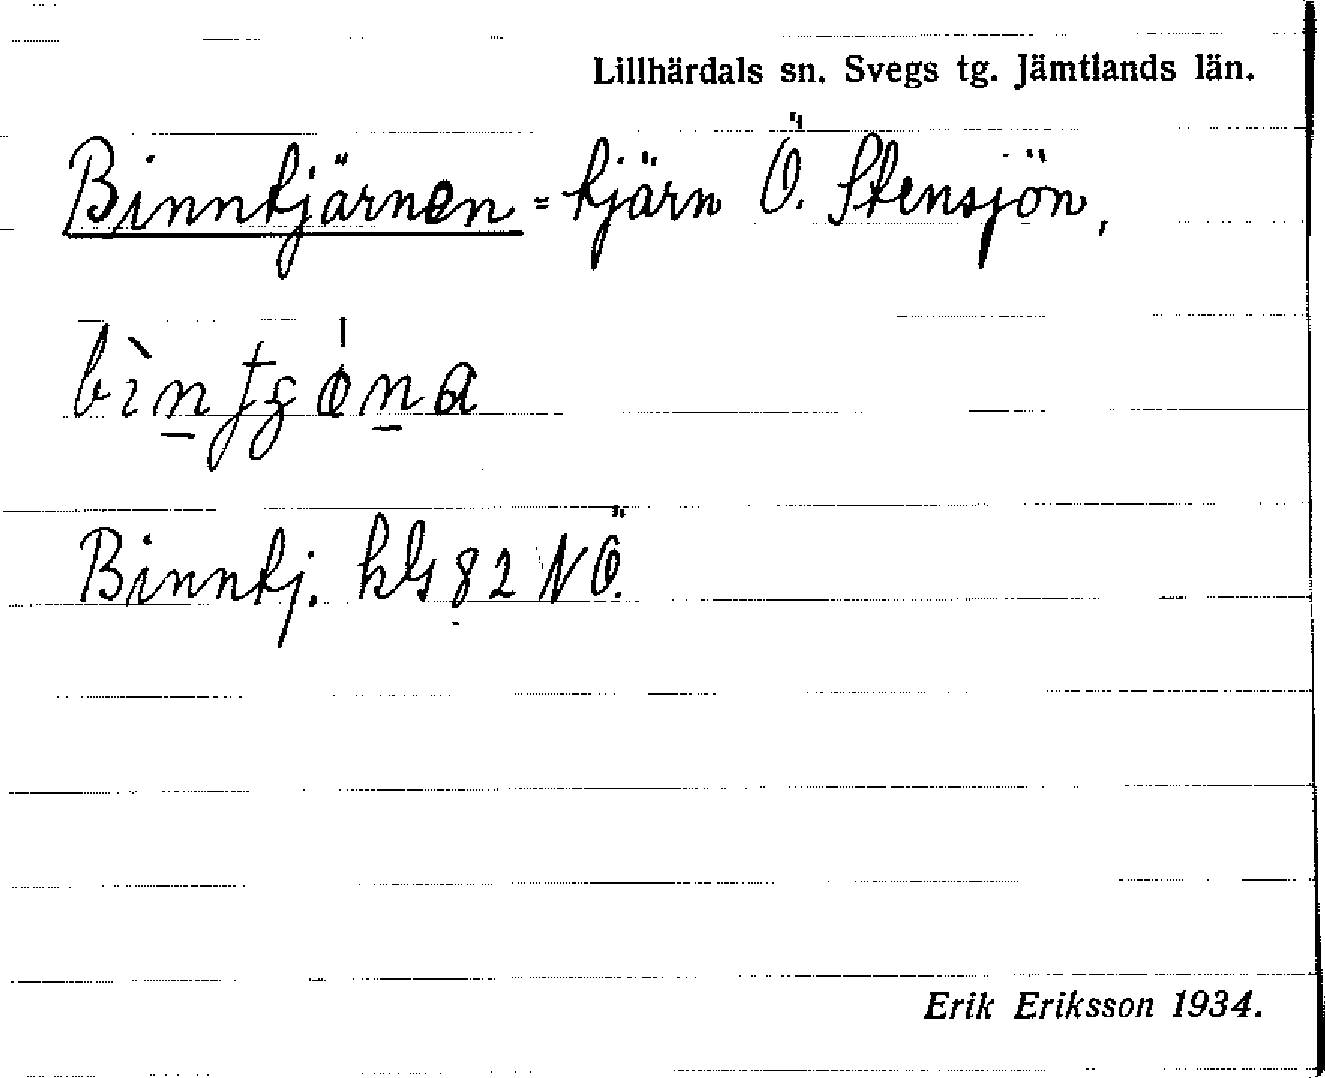 Lillhärdals sn. Svegs tg. Jämtlands län.
Binntjärnen = tjärn Ö. Stensjön,
Binntj. kbl 82 NÖ.
Erik Eriksson 1934.